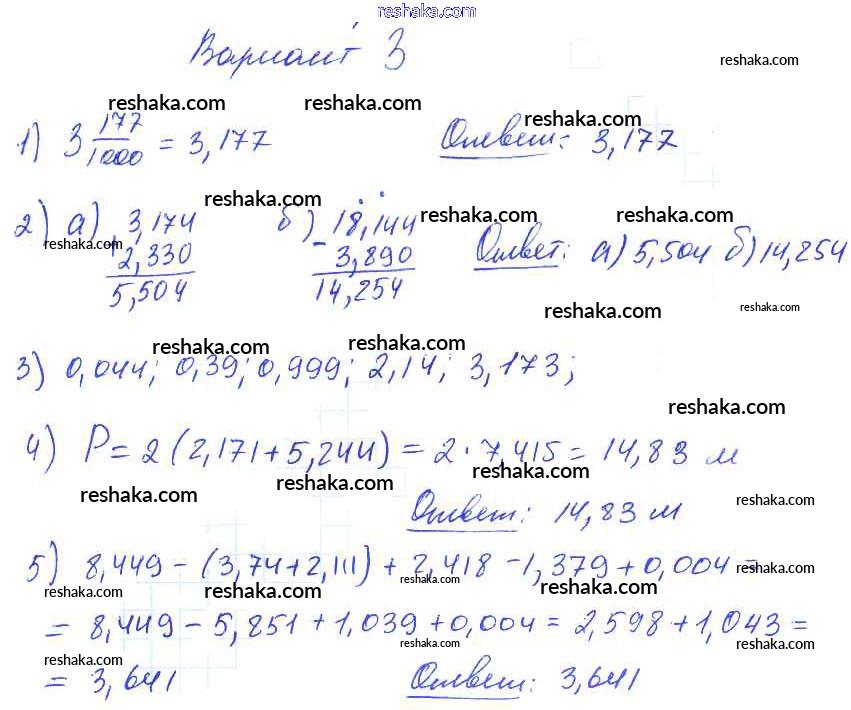 reshaka.com
Вариант 3
reshaka.com
reshaka.com reshaka.com reshaka.com
1) 3 177/1000 = 3,177 Ответ: 3,177
reshaka.com reshaka.com
2) а) 3,174 + 2,330 = 5,504 б) 18,144 - 3,890 = 14,254 Ответ: а) 5,504 б) 14,254
reshaka.com reshaka.com reshaka.com
reshaka.com reshaka.com
reshaka.com reshaka.com
3) 0,044; 0,39; 0,999; 2,14; 3,173;
reshaka.com
4) P = 2 (2,171 + 5,244) = 2 · 7,415 = 14,83 м
reshaka.com reshaka.com reshaka.com
Ответ: 14,83 м
5) 8,449 - (3,74 + 2,111) + 2,418 - 1,379 + 0,004 =
reshaka.com reshaka.com reshaka.com reshaka.com reshaka.com
= 8,449 - 5,851 + 1,039 + 0,004 = 2,598 + 1,043 =
reshaka.com reshaka.com reshaka.com reshaka.com
= 3,641 Ответ: 3,641